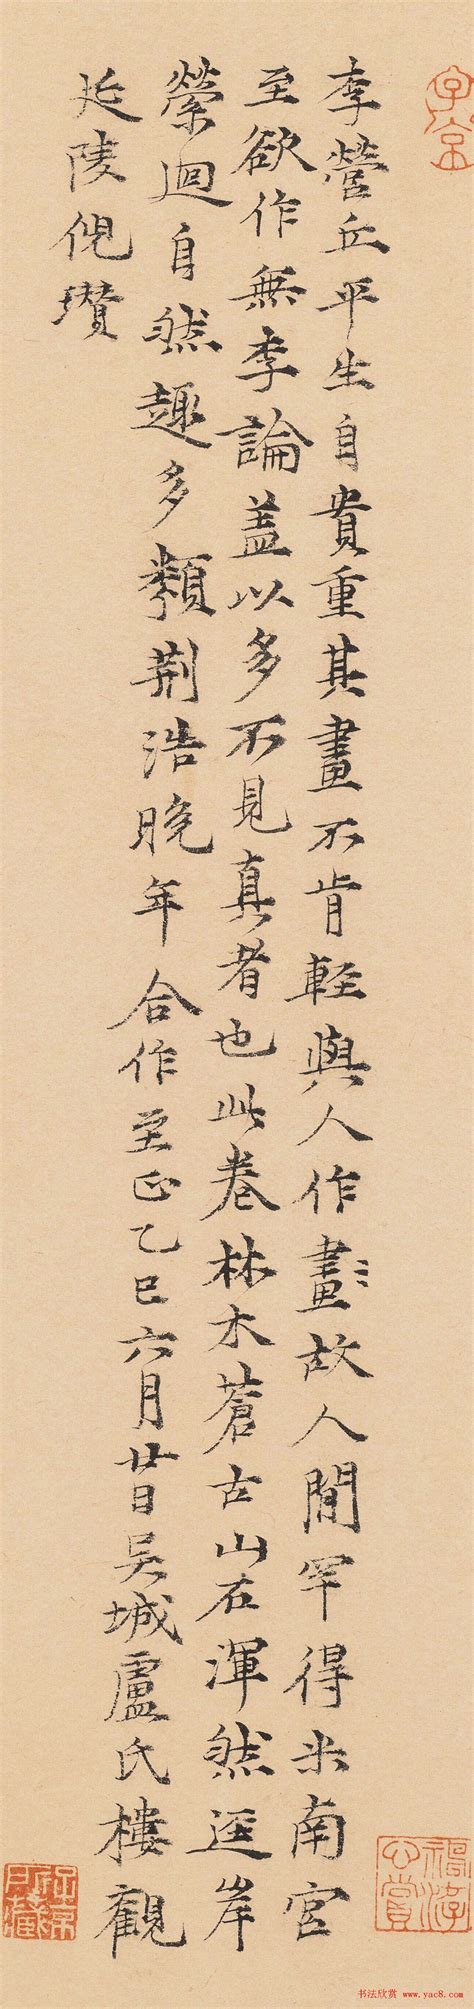 李營丘平生自貴重其畫不肯輕與人作畫故人間罕得米南宮
至欲作無李論蓋以多不見真者也此卷林木蒼古山石渾然迳岸
縈迴自然趣多類荆浩晚年合作至正乙巳六月廿日吴城盧氏樓觀
延陵倪瓚
书法欣赏 www.yac8.com